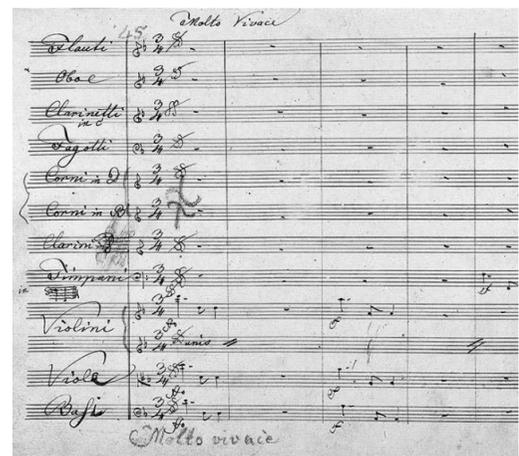 Molto Vivace
45
Flauti
Oboe
Clarinetti
in C
Fagotti
Corni in D
Corni in B
Clarini
Timpani
in
Violini
unis
Viole
Basi
Molto vivace